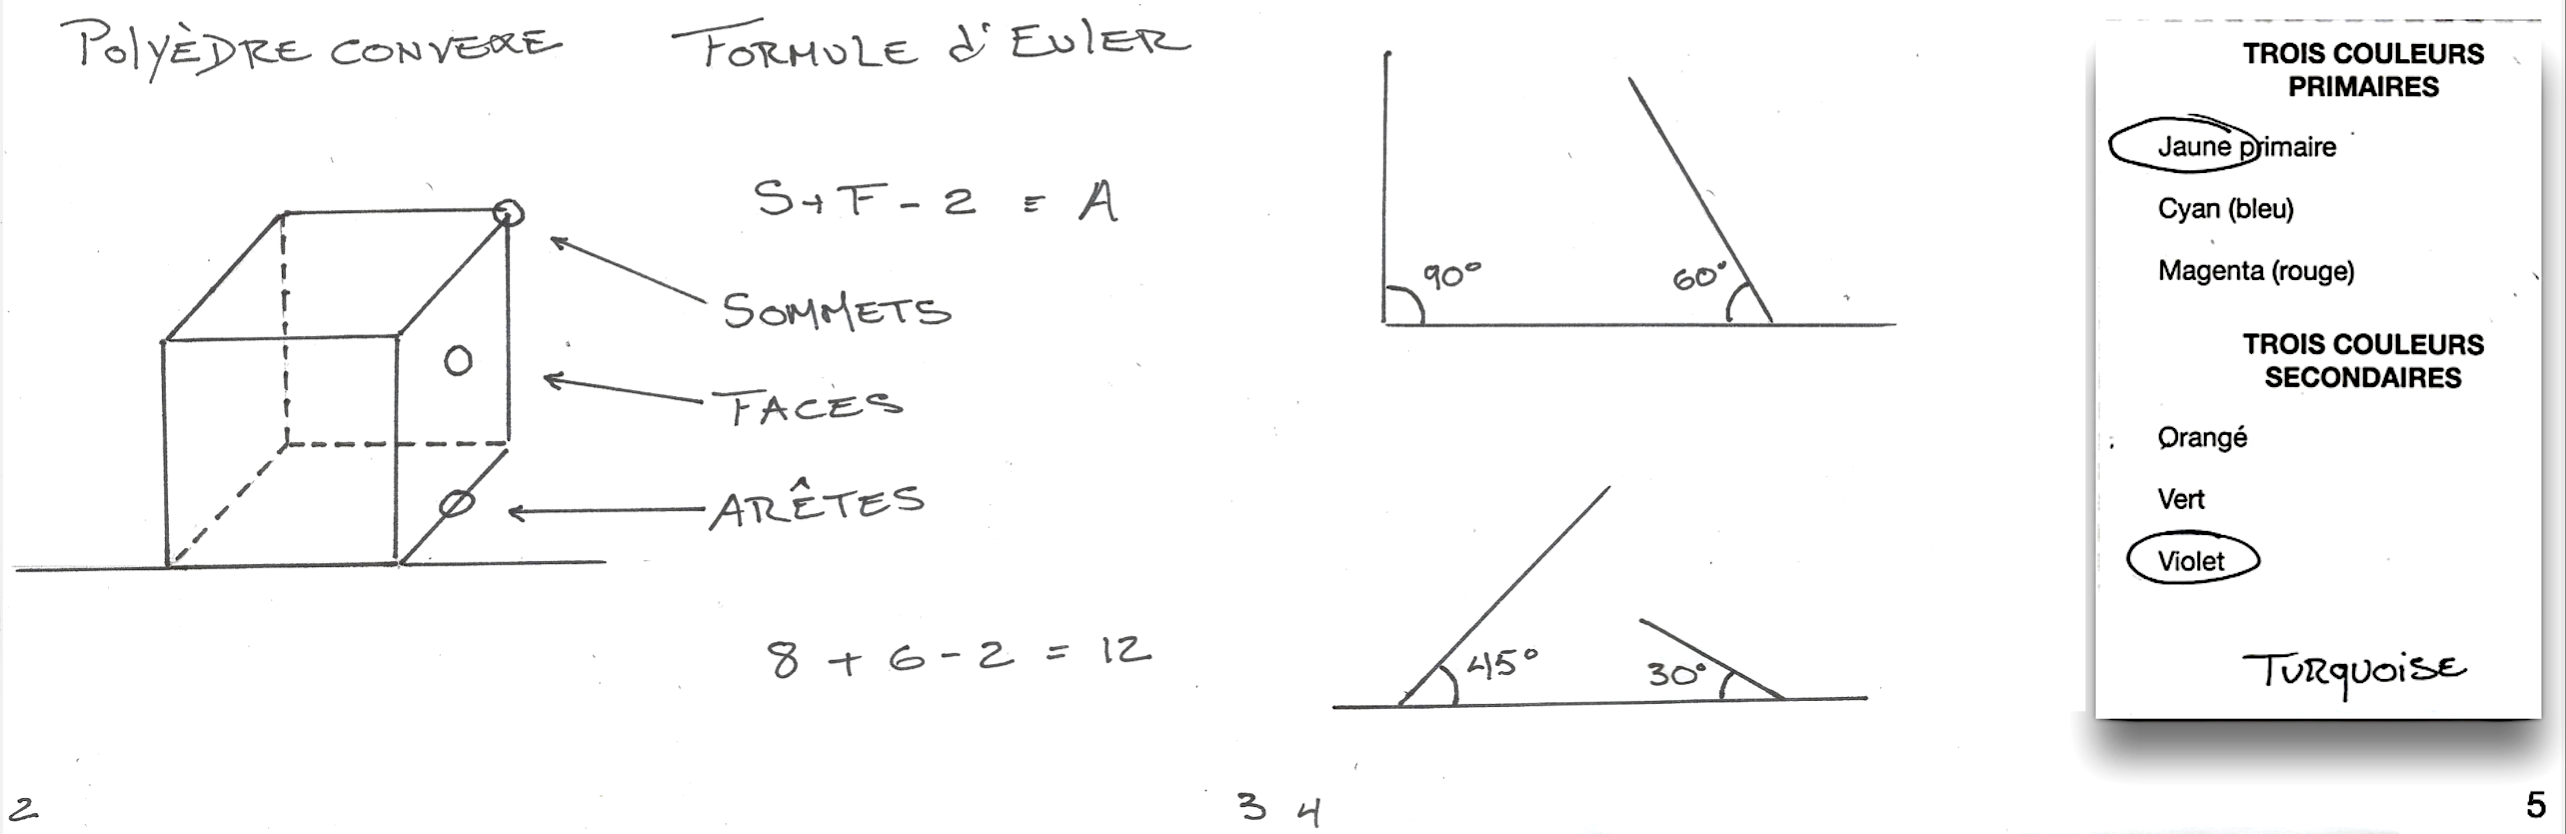 Polyèdre convexe
Formule d'Euler
S + F - 2 = A
Sommets
Faces
Arêtes
8 + 6 - 2 = 12
2
3
90°
60°
45°
30°
4
TROIS COULEURS
PRIMAIRES
Jaune primaire
Cyan (bleu)
Magenta (rouge)
TROIS COULEURS
SECONDAIRES
Orangé
Vert
Violet
Turquoise
5